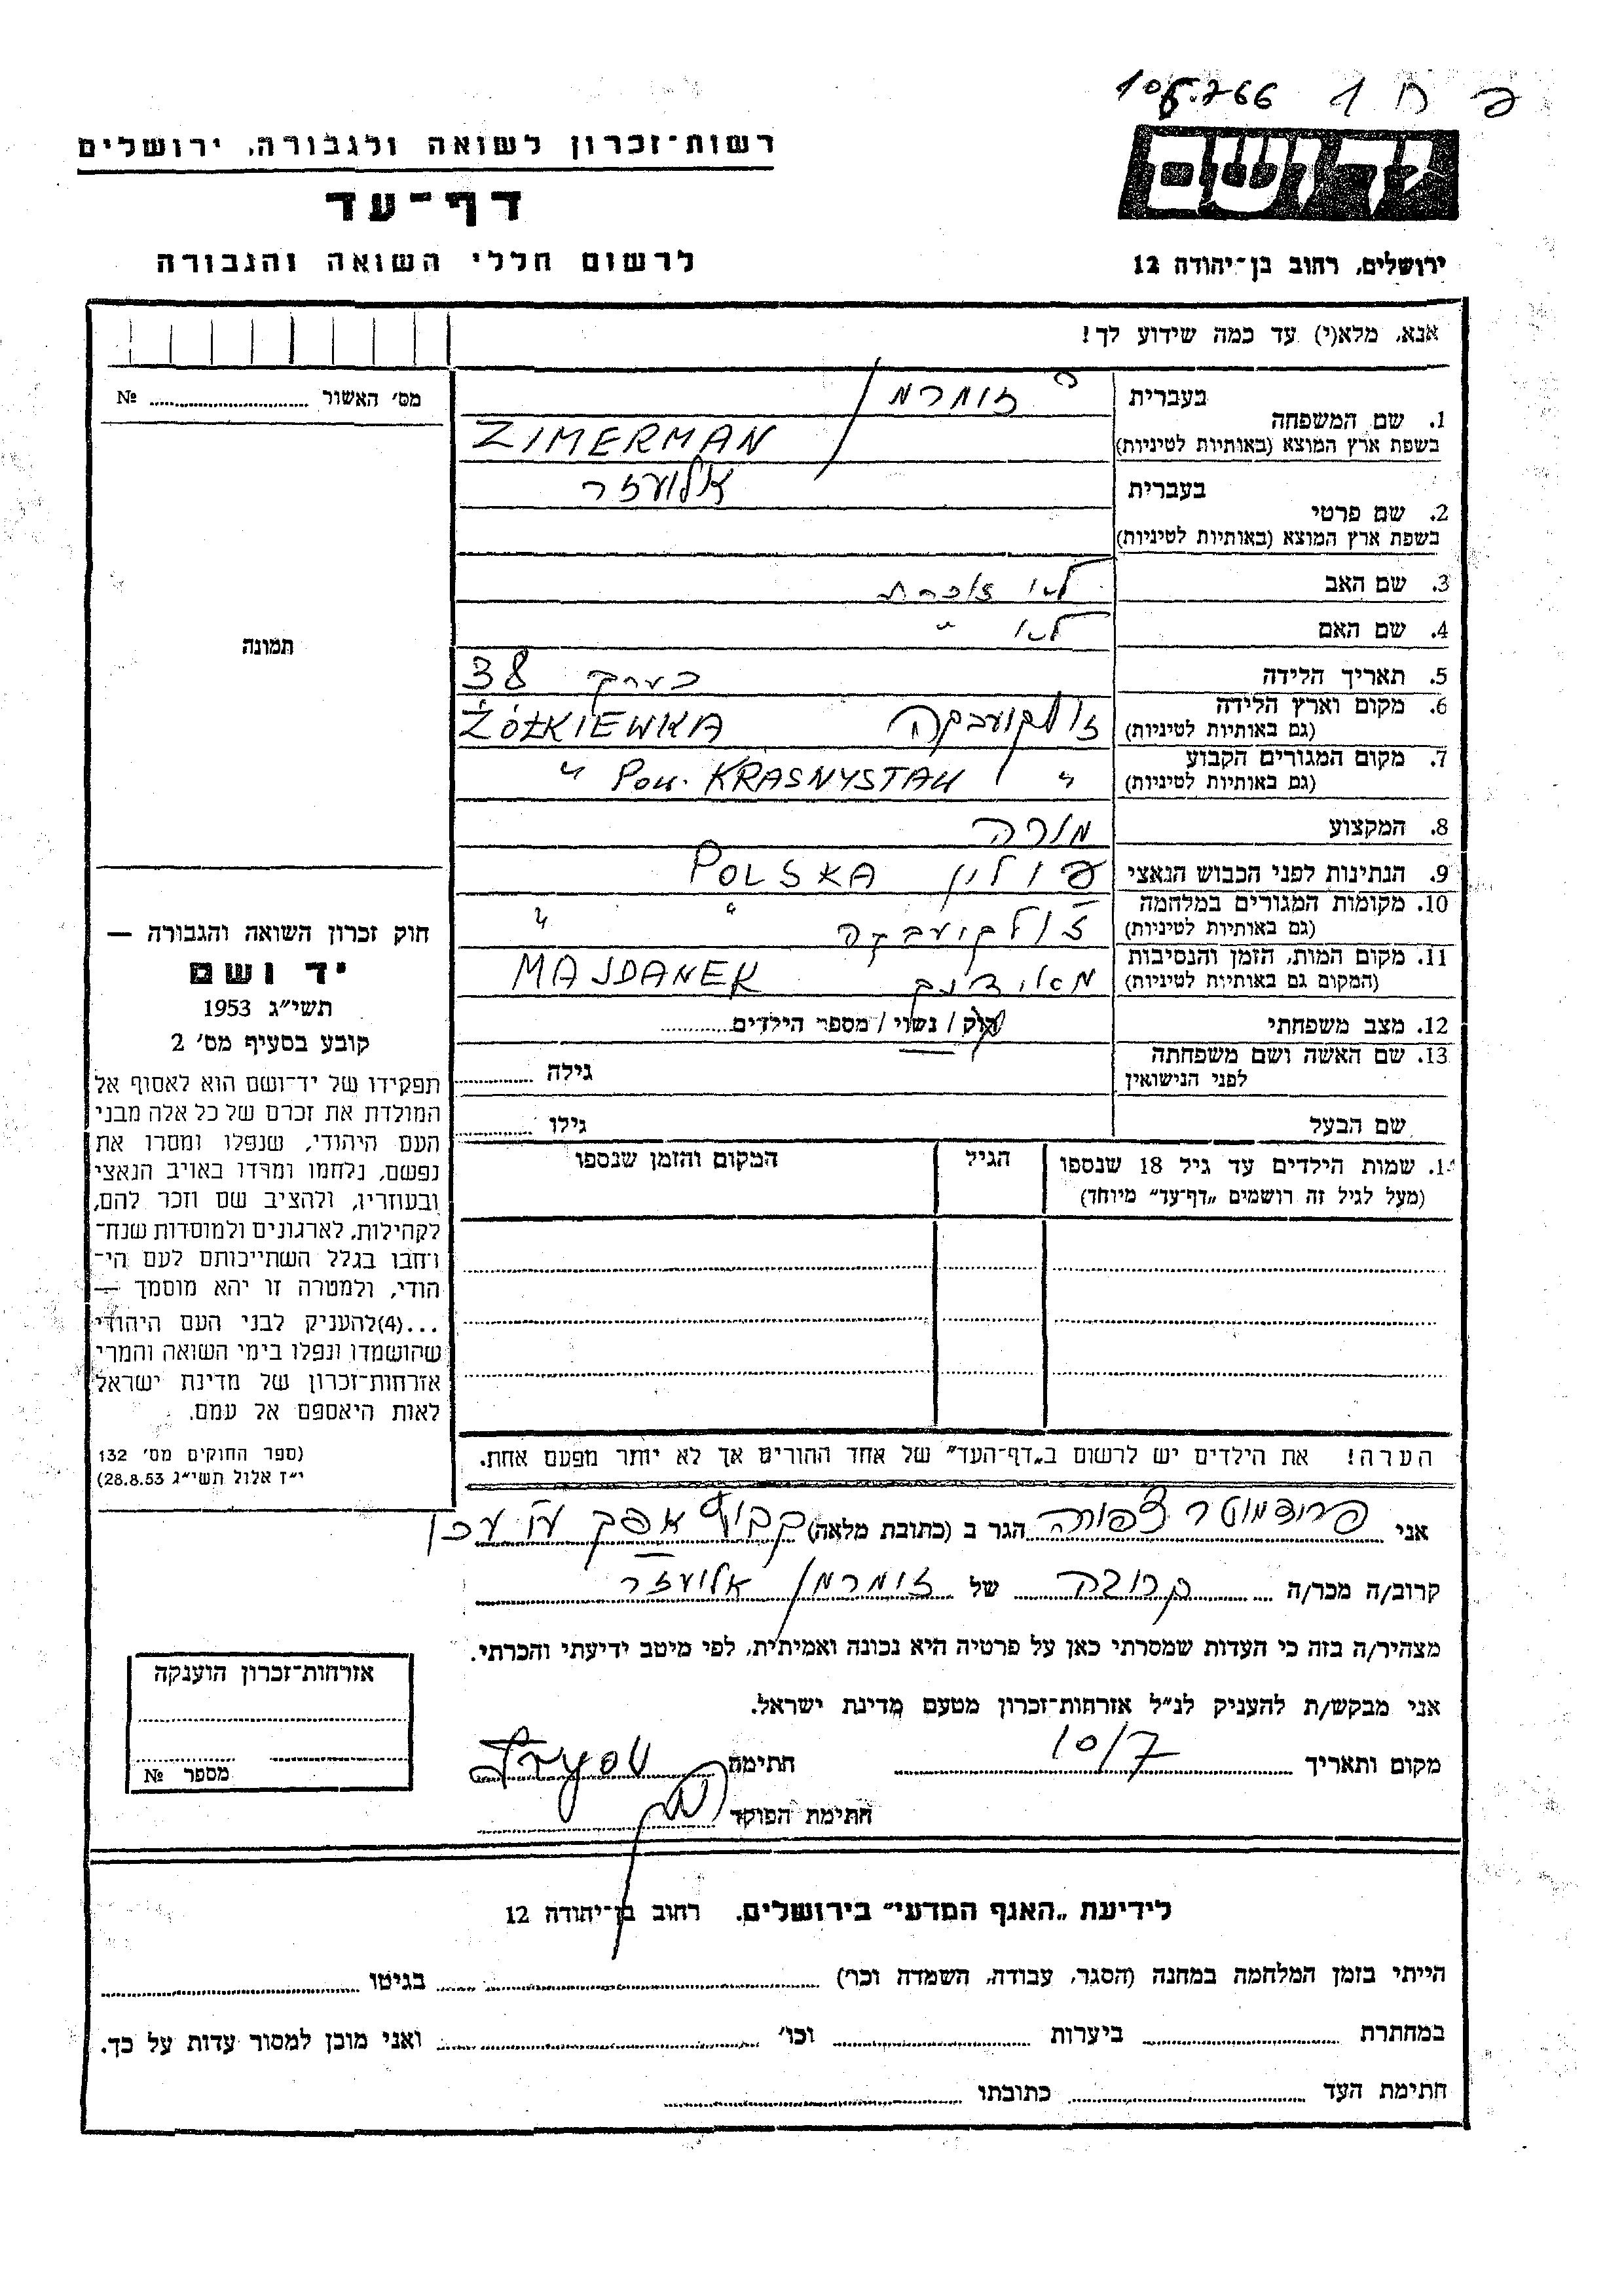 106.766 פ ח 1
יד ושם
ירושלים, רחוב בן־יהודה 12
רשות־זכרון לשואה ולגבורה, ירושלים
דף־עד
לרשום חללי השואה והגבורה
אנא, מלא(י) עד כמה שידוע לך!
מס׳ האשור № 
1. שם המשפחה
בעברית זימרמן
בשפת ארץ המוצא (באותיות לטיניות) ZIMERMAN
2. שם פרטי
בעברית אליעזר
בשפת ארץ המוצא (באותיות לטיניות)
3. שם האב לא זוכרת
4. שם האם לא "
5. תאריך הלידה בערך 38
6. מקום וארץ הלידה
(גם באותיות לטיניות) זולקועבקה ŻÓŁKIEWKA
7. מקום המגורים הקבוע
(גם באותיות לטיניות) " " Pow. KRASNYSTAW
8. המקצוע מורה
9. הנתינות לפני הכבוש הנאצי פולין POLSKA
10. מקומות המגורים במלחמה
(גם באותיות לטיניות) זולקועבקה " "
11. מקום המות, הזמן והנסיבות
(המקום גם באותיות לטיניות) מאידנק MAJDANEK
12. מצב משפחתי רוק / נשוי / מספר הילדים
13. שם האשה ושם משפחתה
לפני הנישואין גילה
שם הבעל גילו
שמות הילדים עד גיל 18 שנספו הגיל המקום והזמן שנספו
(מעל לגיל זה רושמים „דף־עד” מיוחד)
הערה! את הילדים יש לרשום ב„דף־העד” של אחד ההורים אך לא יותר מפעם אחת.
תמונה
חוק זכרון השואה והגבורה —
יד ושם
תשי״ג 1953
קובע בסעיף מס׳ 2
תפקידו של יד־ושם הוא לאסוף אל
המולדת את זכרם של כל אלה מבני
העם היהודי, שנפלו ומסרו את
נפשם, נלחמו ומרדו באויב הנאצי
ובעוזריו, ולהציב שם וזכר להם,
לקהילות, לארגונים ולמוסדות שנח־
רבו בגלל השתייכותם לעם הי־
הודי, ולמטרה זו יהא מוסמך —
...(4)להעניק לבני העם היהודי
שהושמדו ונפלו בימי השואה והמרי
אזרחות־זכרון של מדינת ישראל
לאות היאספם אל עמם.
(ספר החוקים מס׳ 132
י״ז אלול תשי״ג 28.8.53)
אני צפורה הגר ב (כתובת מלאה) קבוץ אפק
קרוב/ה מכר/ה קרובה של זימרמן אליעזר
מצהיר/ה בזה כי העדות שמסרתי כאן על פרטיה היא נכונה ואמיתית, לפי מיטב ידיעתי והכרתי.
אני מבקש/ת להעניק לנ״ל אזרחות־זכרון מטעם מדינת ישראל.
מקום ותאריך 10/7 חתימה
חתימת הפוקד
אזרחות־זכרון הוענקה
מספר №
לידיעת „האגף המדעי” בירושלים. רחוב בן־יהודה 12
הייתי בזמן המלחמה במחנה (הסגר, עבודה, השמדה וכר׳) בגיטו
במחתרת ביערות וכו׳ ואני מוכן למסור עדות על כך.
חתימת העד כתובתו